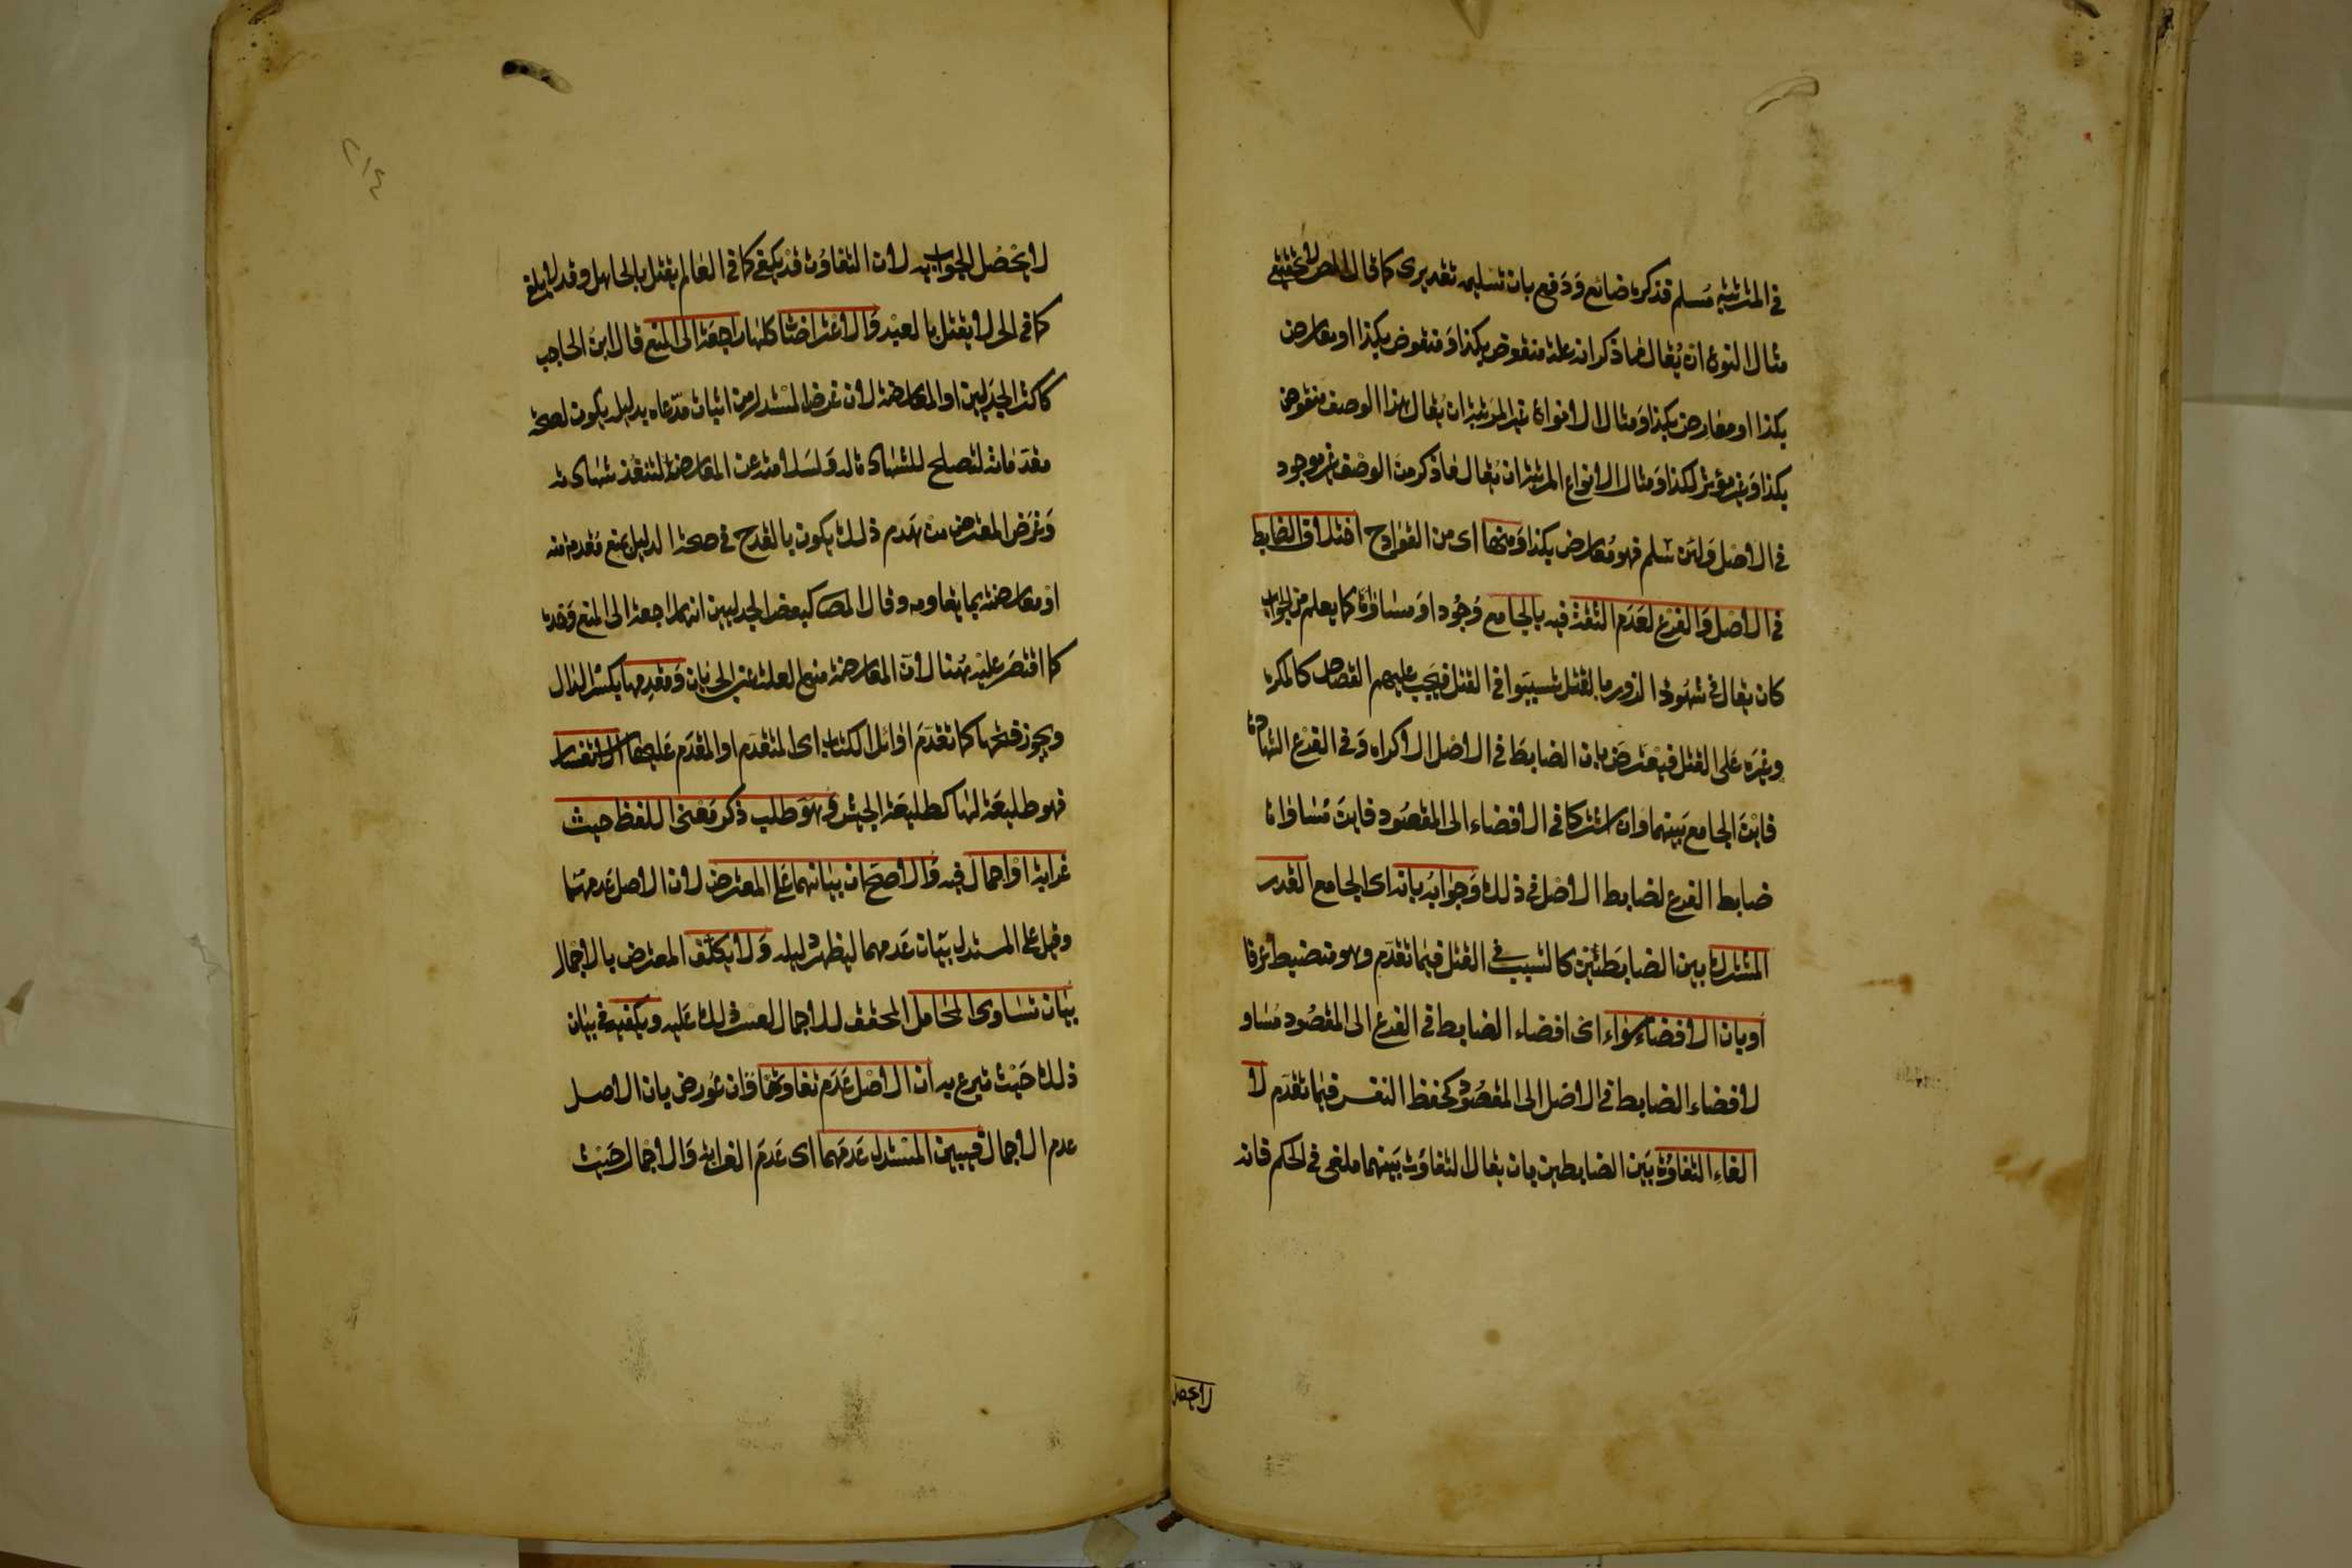 في المترتبة مسلم فذكره ضائع ودفع بان تسليمه تقديري كما قال المص لا تحقيقي
مثال النوع ان يقال ما ذكر انه علة منقوض بكذا ومنقوض بكذا او معارض
بكذا او معارض بكذا ومثال الانواع غير المرتبة ان يقال هذا الوصف منقوض
بكذا وغير مؤثر لكذا ومثال الانواع المرتبة ان يقال ما ذكر من الوصف غير موجود
في الاصل ولئن سلم فهو معارض بكذا ومنها اى من القوادح اختلاف الضابط
في الاصل والفرع لعدم الثقة فيه بالجامع وجودا او مساواة كما يعلم من الجواب
كان يقال في شهود الزور بالقتل تسببوا في القتل فيجب عليهم القصاص كالمكره
وغيره على القتل فيعترض بان الضابط في الاصل الاكراه وفي الفرع الشهادة
فاين الجامع بينهما وان اشتركا في الافضاء الى المقصود فاين مساواة
ضابط الفرع لضابط الاصل في ذلك وجوابه بانه اى الجامع القدر
المشترك بين الضابطين كالتسبب في القتل فيما تقدم وهو منضبط عرفا
او بان الافضاء سواء اى افضاء الضابط في الفرع الى المقصود مساو
لافضاء الضابط في الاصل الى المقصود كحفظ النفس فيما تقدم لا
الغاء التفاوت بين الضابطين بان يقال التفاوت بينهما ملغى في الحكم فانه
لا يحصل
٢١٤
لا يحصل الجواب به لان التفاوت قد يلغى كما في العالم يقتل بالجاهل وقد لا يلغى
كما في الحر لا يقتل بالعبد والاعتراضات كلها راجعة الى المنع قال ابن الحاجب
كاكثر الجدليين او المعارضة لان غرض المستدل من اثبات مدعاه بدليله يكون لصحة
مقدماته لتصلح للشهادة له ولسلامته عن المعارضة لتنفذ شهادته
وغرض المعترض من هدم ذلك يكون بالقدح في صحة الدليل بمنع مقدمة منه
او معارضته بما يقاومه وقال المص كبعض الجدليين انها راجعة الى المنع وحده
كما اقتصر عليه هنا لان المعارضة منع العلة عن الجريان ومقدمها بكسر الدال
ويجوز فتحها كما تقدم اوائل الكتاب اى المتقدم او المقدم عليها الاستفسار
فهو طليعة لها كطليعة الجيش وهو طلب ذكر معنى اللفظ حيث
غرابة او اجمال فيه والاصح ان بيانهما على المعترض لان الاصل عدمهما
وقيل على المستدل بيان عدمهما ليظهر دليله ولا يكلف المعترض بالاجمال
بيان تساوى المحامل المحقق للاجمال لعسر ذلك عليه ويكفيه في بيان
ذلك حيث تبرع به ان الاصل عدم تفاوتها وان عورض بان الاصل
عدم الاجمال فيبين المستدل عدمهما اى عدم الغرابة والاجمال حيث